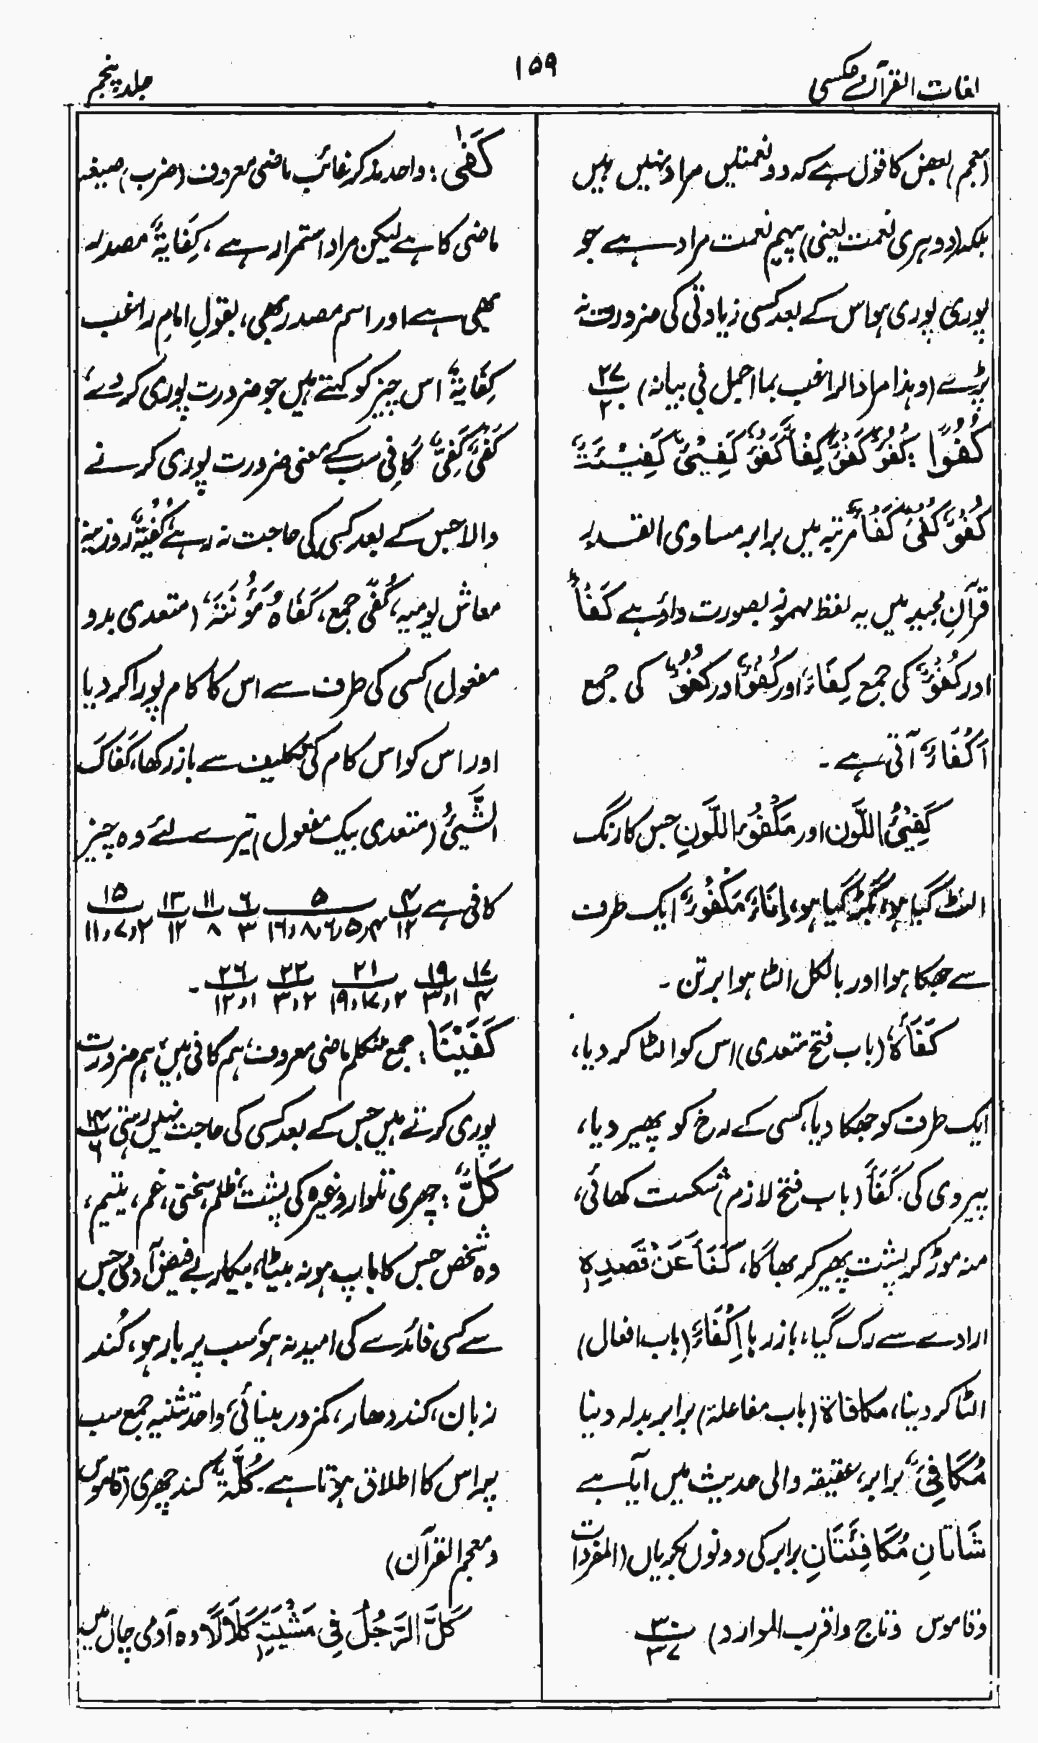 لغات القرآن عکسی
۱۵۹
جلد پنجم
(معجم) بعض کا قول ہے کہ دو نعمتیں مراد نہیں ہیں
بلکہ (دوہری نعمت یعنی) پیہم نعمت مراد ہے جو
پوری پوری ہو اس کے بعد کسی زیادتی کی ضرورت نہ
پڑے (وہذا مراد الراغب بما اجمل فی بیانہ) ۲۷/۲۰
كُفُوًا : كُفُؤٌ كَفُؤٌ كِفَأٌ كَفْؤٌ كَفِيْئٌ كَفِيْئَةٌ
كُفُوٌ كُفْیٌ كَفَاءٌ مرتبہ میں برابر مساوی القدر
قرآنِ مجید میں یہ لفظ مہموز بصورت واؤ ہے كَفْأٌ
اور كُفْؤٌ کی جمع كِفَاءٌ اور كُفُؤٌ اور كُفُوٌ کی جمع
اَكْفَاءٌ آتی ہے ۔
كَفِيْئُ اللَّوْنِ اور مَكْفُوْءُ اللَّوْنِ جس کا رنگ
الٹ گیا ہو، بگڑ گیا ہو، اِنَاءٌ مَكْفُوْءٌ ایک طرف
سے جھکا ہوا اور بالکل الٹا ہوا برتن ۔
كَفَأَهٗ (باب فتح متعدی) اس کو الٹا کر دیا،
ایک طرف کو جھکا دیا، کسی کے رخ کو پھیر دیا،
پیروی کی. كَفَأَ (باب فتح لازم) شکست کھائی،
منہ موڑ کر پشت پھیر کر بھاگا، كَفَأَ عَنْ قَصْدِهٖ
ارادے سے رک گیا، باز رہا اِكْفَاءٌ (باب افعال)
الٹا کر دینا، مکافاة (باب مفاعلة) برابر بدلہ دینا
مُكَافِیٌ برابر، عقیقہ والی حدیث میں آیا ہے
شَاتَانِ مُكَافِئَتَانِ برابر کی دونوں بکریاں (المفردات
و قاموس و تاج و اقرب الموارد) ۳۰/۳۷
كَفٰى : واحد مذکر غائب ماضی معروف (ضرب) صیغہ
ماضی کا ہے لیکن مراد استمرار ہے ، كِفَايَةٌ مصدر
بھی ہے اور اسم مصدر بھی، بقولِ امامِ راغب
كِفَايَةٌ اس چیز کو کہتے ہیں جو ضرورت پوری کر دے،
كَفْیٌ كَفِیٌّ كَافِیٌ سب کے معنی ضرورت پوری کرنے
والا جس کے بعد کسی کی حاجت نہ رہے كُفْيَةٌ روزینہ
معاش یومیہ، كُفًی جمع، كَفَاهُ مَؤُنَتَهٗ (متعدی بدو
مفعول) کسی کی طرف سے اس کا کام پورا کر دیا
اور اس کو اس کام کی تکلیف سے باز رکھا، كَفَاكَ
الشَّيْئُ (متعدی بیک مفعول) تیرے لئے وہ چیز
کافی ہے ۴/۱۲ ۵/۴،۵،۶،۸،۱۶ ۶/۳ ۱۱/۸ ۱۳/۱۲ ۱۵/۲،۷،۱۱
۱۷/۴ ۱۹/۱،۳ ۲۱/۲،۱۷،۱۹ ۲۲/۲،۳ ۲۶/۱،۱۲ ۔
كَفَيْنَا : جمع متکلم ماضی معروف، ہم کافی ہیں، ہم ضرورت
پوری کرتے ہیں جس کے بعد کسی کی حاجت نہیں رہتی ۱۴/۶
كَلٌّ : چھری تلوار وغیرہ کی پشت، ظلم، سختی، غم، یتیم،
وہ شخص جس کا باپ ہو نہ بیٹا، بیکار بے فیض آدمی جس
سے کسی فائدے کی امید نہ ہو، سب پر بار ہو، کُند
زبان، کند دھار، کمزور بینائی، واحد تثنیہ جمع سب
پر اس کا اطلاق ہوتا ہے. كُلَّةٌ کند چھری (قاموس
و معجم القرآن)
كَلَّ الرَّجُلُ فِي مَشْيَتِهٖ كَلَالًا وہ آدمی چال میں